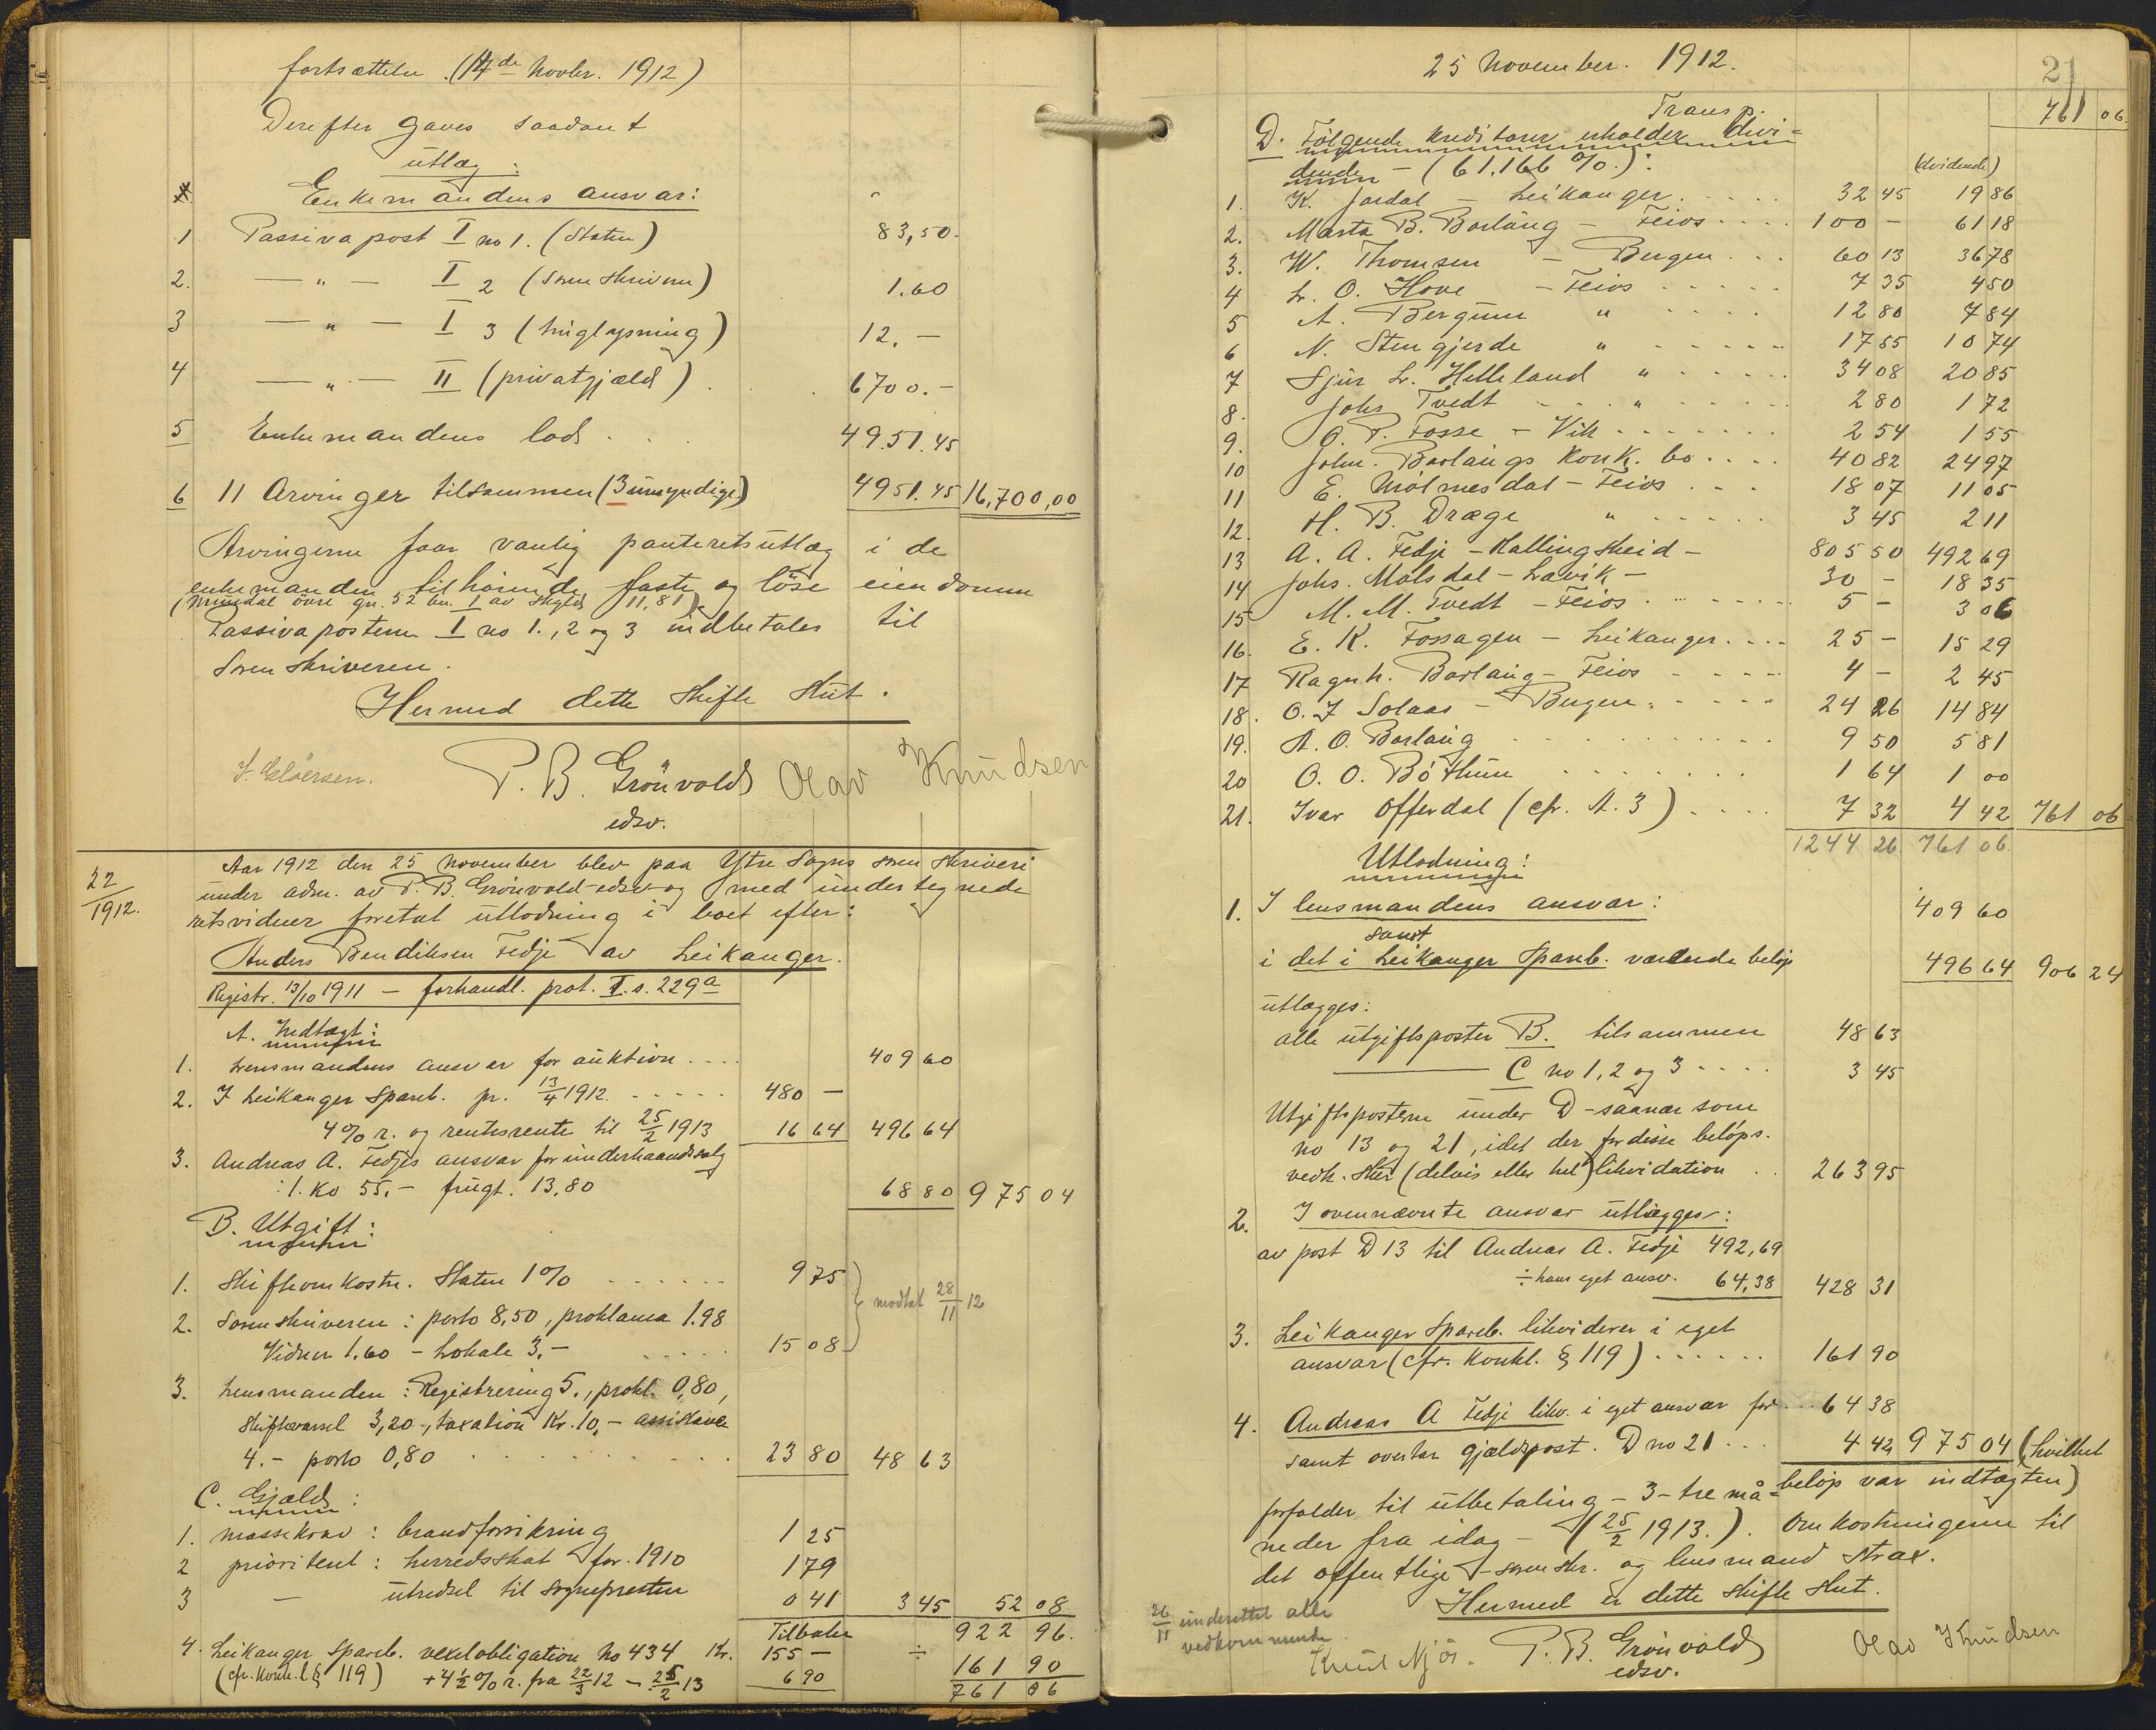 fortsættelse (14de Novbr. 1912)
Derefter gaves saadant
utlæg:
Enkemandens ansvar:
1 Passiva post I no 1. (Staten) 83,50.
2. — " — I 2 (Sorenskriveren) 1.60
3 — " — I 3 (tinglysning) 12.—
4 — " — II (privatgjæld) . . 6700.—
5 Enkemandens lod . . . 4951.45
6 11 Arvinger tilsammen (3 umyndige) 4951.45 16,700,00
Arvingerne faar vanlig panteretsutlæg i de
enkemanden tilhørende faste og løse eiendomme
(Nundal øvre gn. 52 bn. 1 av skyld 11,81).
Passivaposterne I no 1., 2 og 3 indbetales til
Sorenskriveren.
Hermed dette skifte slut.
P. B. Grönvold Olav Knudsen
edsv.
22/1912.
Aar 1912 den 25 November blev paa Ytre Sogns sorenskriveri
under adm. av P. B. Grönvold edsv og med undertegnede
retsvidner foretat utlodning i boet efter:
Anders Bendiksen Fedje av Leikanger.
Registr. 13/10 1911 — forhandl. prot. I. s. 229a
A. Indtægt:
1. Lensmandens ansvar for auktion .... 409 60
2. I Leikanger Spareb. pr. 13/4 1912. ..... 480 —
4% r. og rentesrente til 25/2 1913 16 64 496 64
3. Andreas A. Fedjes ansvar for underhaandssalg
: 1. Ko 55.— frugt. 13,80 68 80 975 04
B. Utgift:
1. Skifteomkostn. Staten 1% ...... 9 75
modtat 28/11 12
2. Sorenskriveren: porto 8,50, proklama 1.98
Vidner 1.60 — Lokale 3.— ..... 15 08
3. Lensmanden: Registrering 5., prokl. 0,80,
Skiftevarsel 3,20-, taxation Kr. 10,— assistance
4.— porto 0,80 ......... 23 80 48 63
C. Gjæld:
1. massekrav: brandforsikring 1 25
2 prioritert: herredsskat for 1910 1 79
3 — utredsel til sognepresten 0 41 3 45 52 08
Tilbake 922 96.
4. Leikanger Spareb. vexelobligation No 434 Kr. 155 — ÷ 161 90
(cfr. Konk.l § 119) + 4½% r. fra 22/3 12 — 25/2 13 6 90 761 06
25 November. 1912.
21
Transp. 761 06
D. Følgende kreditorer erholder divi-
dende — (61.166 %.): (dvidende)
1. K. Jordal — Leikanger ..... 32 45 19 86
2. Marta B. Borlaug — Feios .... 100 — 61 18
3. W. Thomsen — Bergen ... 60 13 36 78
4 L. O. Hove — Feios ..... 7 35 4 50
5 A. Bergum " .... 12 80 7 84
6 N. Stengjerde " ..... 17 55 10 74
7 Sjur L. Helleland " ...... 34 08 20 85
8. Johs Tvedt " ...... 2 80 1 72
9. O. P. Fosse — Vik ....... 2 54 1 55
10 John. Borlaugs Konk. bo .... 40 82 24 97
11 E. Mölmesdal — Feios ... 18 07 11 05
12. H. B. Dræge " ..... 3 45 2 11
13 A. A. Fedje — Hallingskeid — 805 50 492 69
14 Johs. Molsdal — Lavik — 30 — 18 35
15 M. M. Tvedt — Feios ...... 5 — 3 06
16. E. K. Fossagen — Leikanger.... 25 — 15 29
17 Ragnh. Borlaug — Feios ..... 4 — 2 45
18. O. J Solaas — Bergen ..... 24 26 14 84
19. A. O. Borlaug ......... 9 50 5 81
20 O. O. Böthun ....... 1 64 1 00
21. Ivar Offerdal (cfr. A. 3) .... 7 32 4 42 761 06
1244 26 761 06.
Utlodning:
1. I lensmandens ansvar: 409 60
samt
i det i Leikanger Spareb. værende beløp 496 64 906 24
utlægges:
alle utgiftsposter B. tilsammen 48 63
——— C no 1, 2 og 3 .... 3 45
Utgiftsposterne under D — saanær som
no 13 og 21, idet der for disse beløps.
vedk. sker (delvis eller hel) likvidation .. 263 95
2. I ovennævnte ansvar utlægges:
av post D 13 til Andreas A. Fedje 492,69
÷ hans eget ansv. 64.38 428 31
3. Leikanger Spareb. likviderer i eget
ansvar (cfr. Konkl. § 119) ...... 161 90
4. Andreas A Fedje likv. i eget ansvar for ... 64 38
samt overtar gjældspost. D no 21 ... 4 42 975 04 (hvilket
beløp var indtægten)
forfalder til utbetaling — 3 — tre må-
neder fra idag — (25/2 1913.). Omkostningerne til
det offentlige — sorenskr. og lensmand strax.
Hermed er dette skifte slut.
26/11 underrettet alle
vedkommende
Knut Njös. P. B. Grönvold Olav Knudsen
edsv.